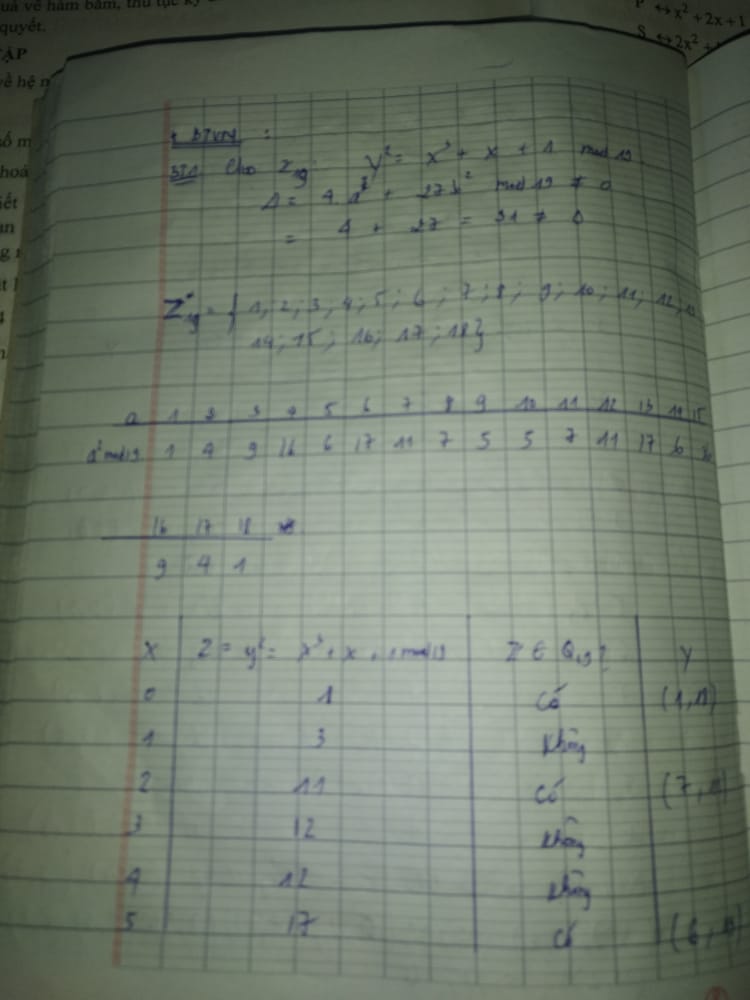 quyết.
x² + 2x + 1
S ↔ 2x² +
* BTVN :
BT1 Cho Z₁₉ y² = x³ + x + 1 mod 19
Δ = 4.a³ + 27b² mod 19 ≠ 0
= 4 + 27 = 31 ≠ 0
Z*₁₉ = { 1, 2; 3, 4; 5; 6; 7; 8; 9; 10; 11; 12, 13
14; 15; 16; 17; 18}
a 1 2 3 4 5 6 7 8 9 10 11 12 13 14 15
a² mod 19 1 4 9 16 6 17 11 7 5 5 7 11 17 6
16 17 18
9 4 1
x Z = y² = x³ + x + 1 mod 19 Z ∈ Q₁₉? y
0 1 Có (1,
1 3 không
2 11 Có (7,
3 12 không
4 12 không
5 17 Có (6,